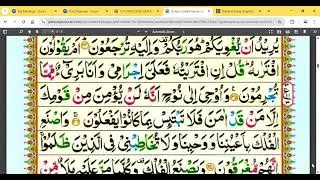 يُّرِيْدُ اَنْ يُّغْوِيَكُمْ هُوَ رَبُّكُمْ وَاِلَيْهِ تُرْجَعُوْنَ اَمْ يَقُوْلُوْنَ
افْتَرٰىهُ قُلْ اِنِ افْتَرَيْتُهٗ فَعَلَيَّ اِجْرَامِيْ وَاَنَا بَرِيْٓءٌ مِّمَّا
تُجْرِمُوْنَ وَاُوْحِيَ اِلٰى نُوْحٍ اَنَّهٗ لَنْ يُّؤْمِنَ مِنْ قَوْمِكَ
اِلَّا مَنْ قَدْ اٰمَنَ فَلَا تَبْتَئِسْ بِمَا كَانُوْا يَفْعَلُوْنَ وَاصْنَعِ
الْفُلْكَ بِاَعْيُنِنَا وَوَحْيِنَا وَلَا تُخَاطِبْنِيْ فِي الَّذِيْنَ ظَلَمُوْا
اِنَّهُمْ مُّغْرَقُوْنَ وَيَصْنَعُ الْفُلْكَ وَكُلَّمَا مَرَّ عَلَيْهِ مَلَاٌ مِّنْ